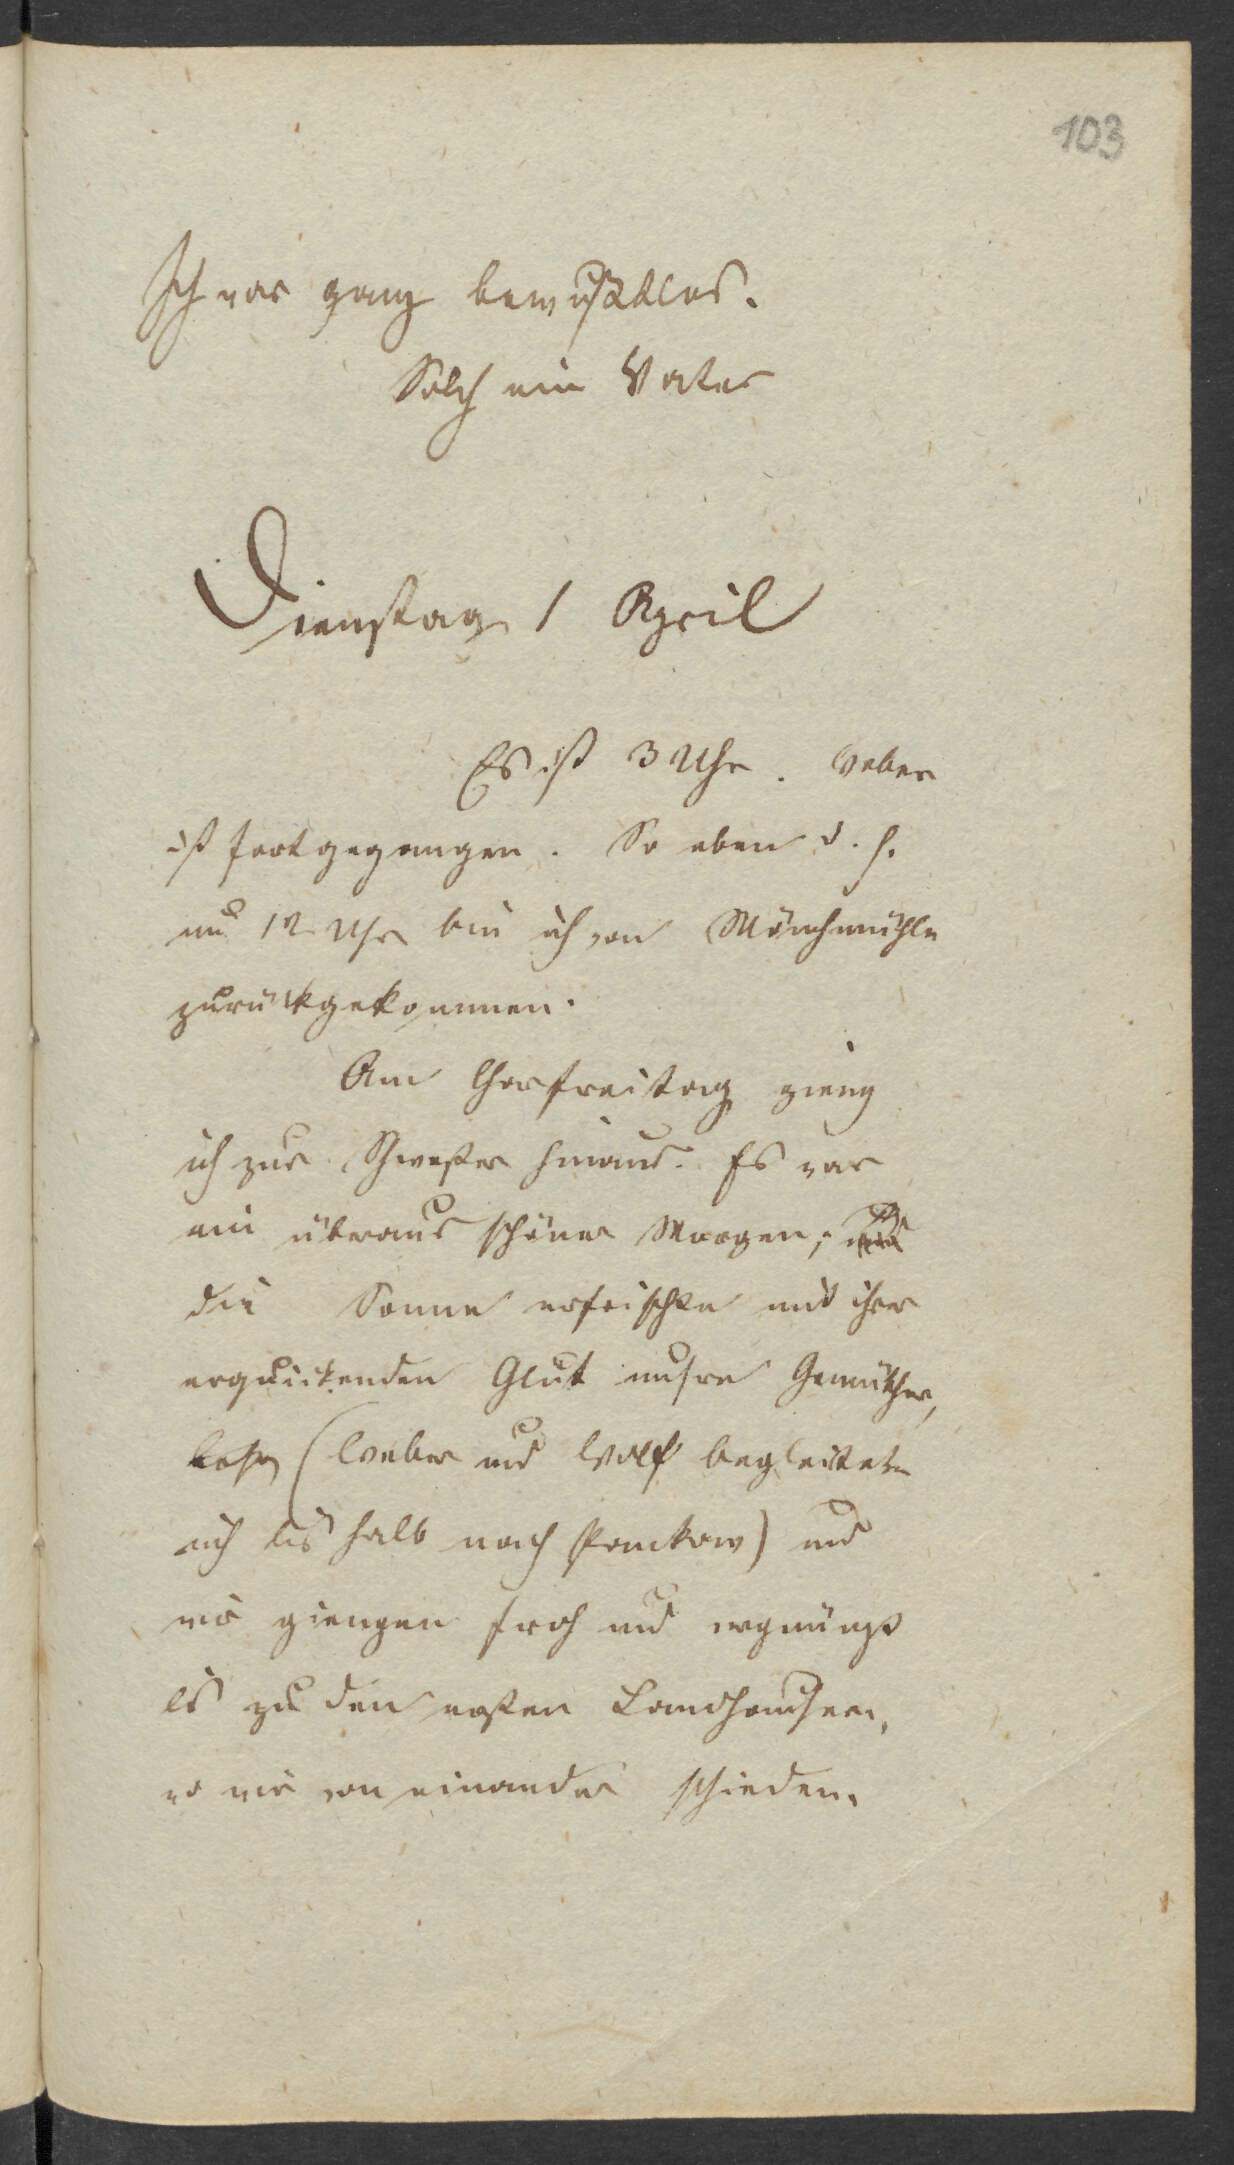 103
Ich war ganz bewußtlos.
Solch ein Vater
Dienstag 1 April
Es ist 3 Uhr. Weber
ist fortgegangen. So eben d. h.
um 12 Uhr bin ich von Mönchmühle
zurückgekommen.
Am Charfreitag gieng
ich zur Schwester hinaus. Es war
ein überaus schöner Morgen; und
die Sonne erfrischte mit ihrer
erquickenden Glut unsre Gemüther,
(Weber und Wolf begleiteten
mich bis halb nach Pankow) und
wir giengen froh und vergnügt
bis zu den ersten Landhäusern,
wo wir von einander schieden.